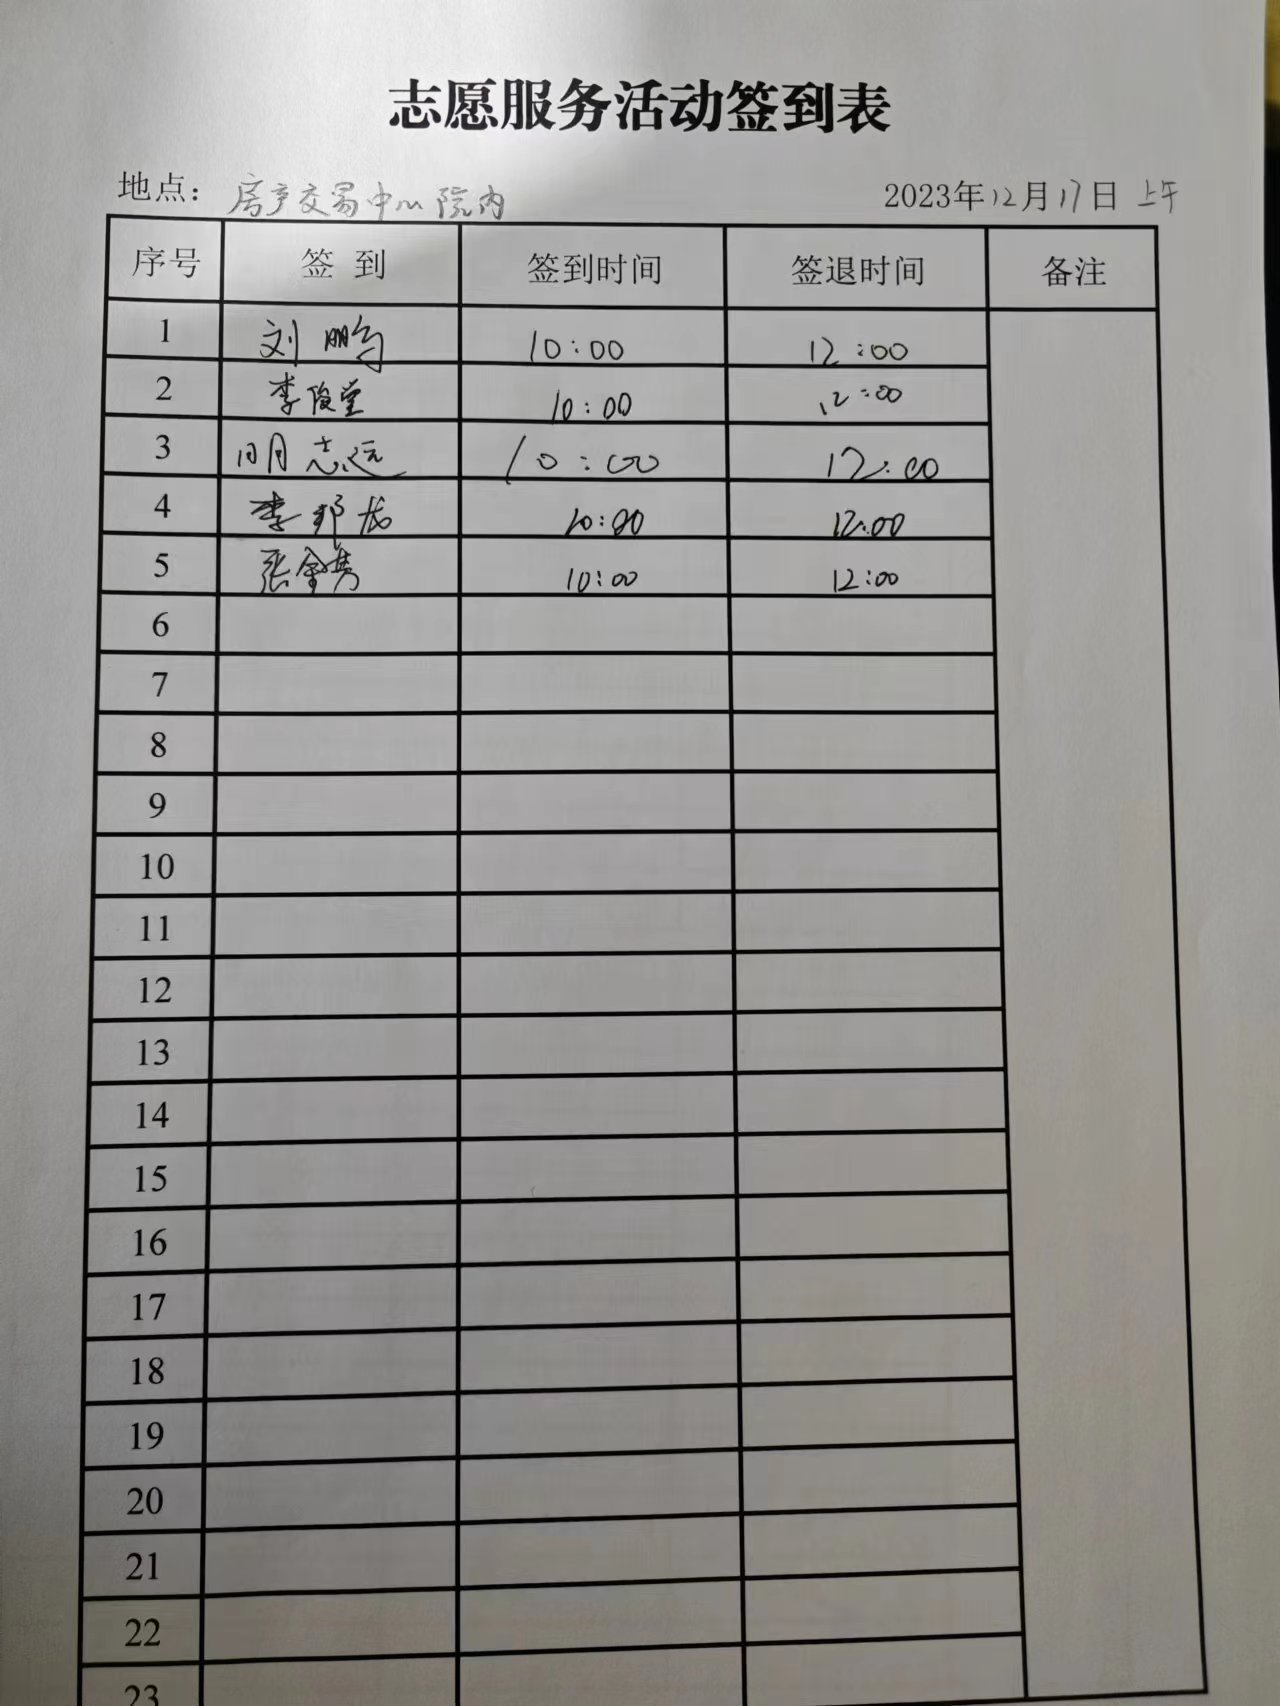 志愿服务活动签到表
地点：房产交易中心院内 2023年12月17日 上午
序号 签到 签到时间 签退时间 备注
1 刘鹏 10:00 12:00
2 李俊堂 10:00 12:00
3 明志远 10:00 12:00
4 李邦龙 10:00 12:00
5 张金秀 10:00 12:00
6
7
8
9
10
11
12
13
14
15
16
17
18
19
20
21
22
23